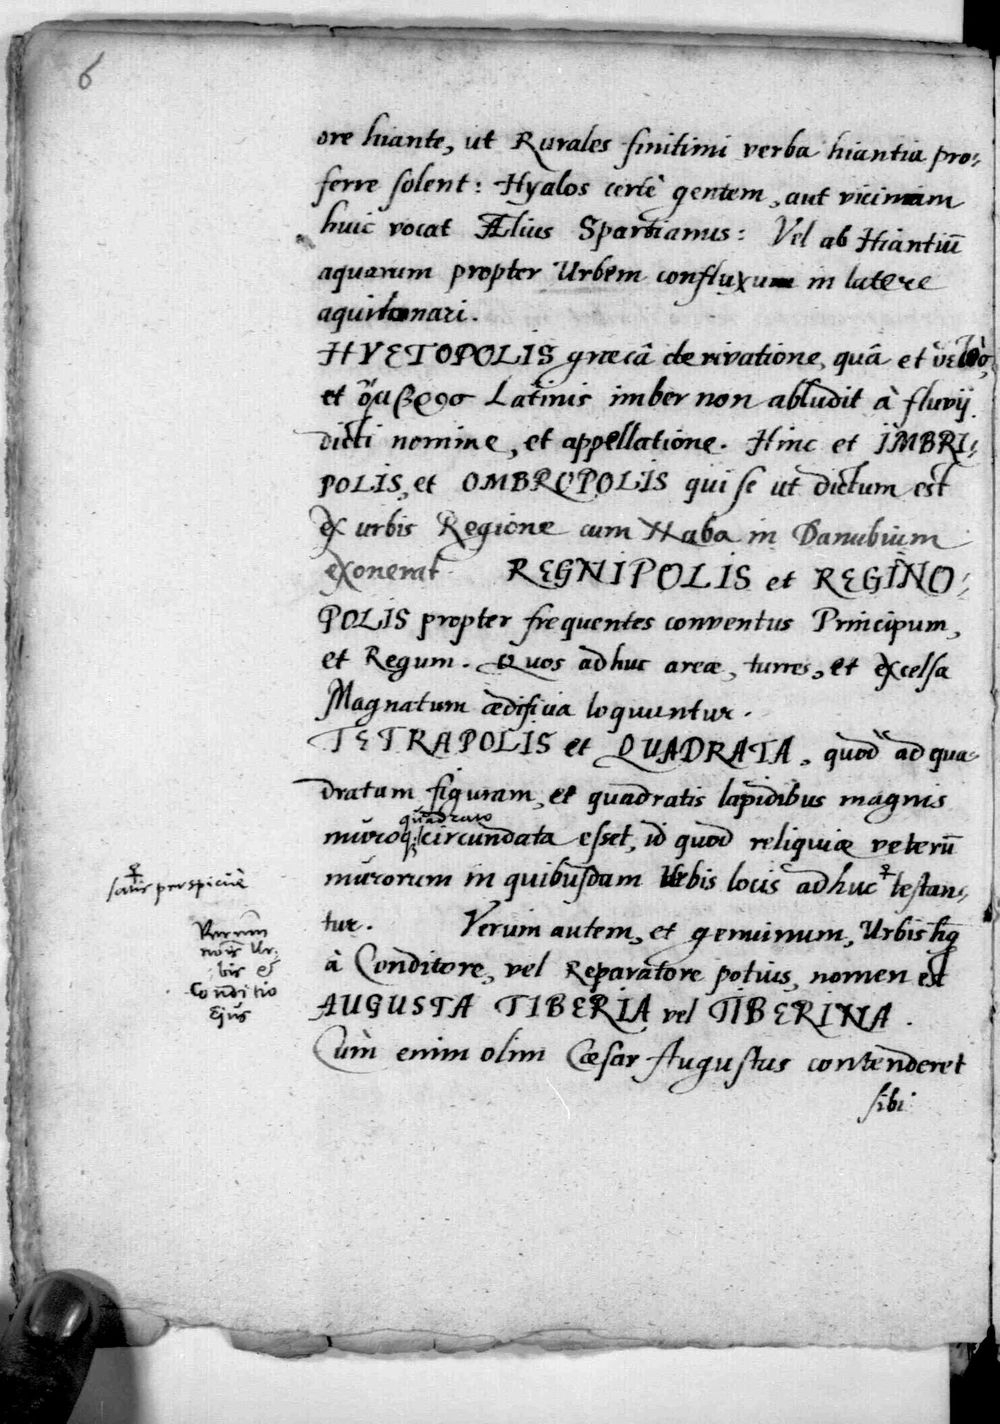 6
ore hiante, ut Rurales finitimi verba hiantia pro-
ferre solent: Hyalos certè gentem, aut vicinam
huic vocat Ælius Spartianus: Vel ab Hiantiū
aquarum propter Urbem confluxum in latere
aquilonari.
HYETOPOLIS græcâ derivatione, quâ et ὑετὸς,
et ὄμβρος Latinis imber non abludit à fluvij
dicti nomine, et appellatione. Hinc et IMBRI-
POLIS, et OMBROPOLIS qui se ut dictum est
ex urbis Regione cum Naba in Danubium
exonerat. REGNIPOLIS et REGINO-
POLIS propter frequentes conventus Principum,
et Regum. Quos adhuc areæ, turres, et excelsa
Magnatum ædificia loquuntur.
TETRAPOLIS et QUADRATA, quod ad qua-
dratam figuram, et quadratis lapidibus magnis
quadrato
muroq; circundata esset, id quod reliquiæ veterū
murorum in quibusdam Urbis locis adhuc ♀ testan-
♀
satis perspicuè
tur. Verum autem, et genuinum, Urbis hq
Verum
nōis Ur-
bis &
Conditio
Ejus
à Conditore, vel Reparatore potius, nomen est
AUGUSTA TIBERIA vel TIBERINA.
Cùm enim olim Cæsar Augustus contenderet
sibi